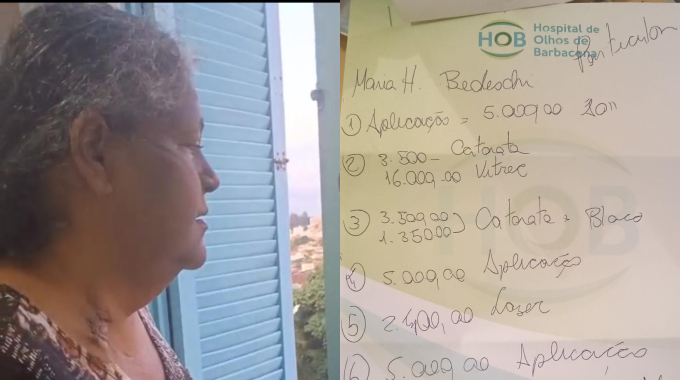 HOB Hospital de
Olhos de
Barbacena
Particular
Maria H. Bedeschi
① Aplicação = 5.000,00
② 3.500 - Catarata
16.000,00 Vitrec
③ 3.500,00 } Catarata +
1.350,00
④ 5.000,00 Aplicação
⑤ 2.400,00 Laser
⑥ 5.000,00 Aplicação
HOB